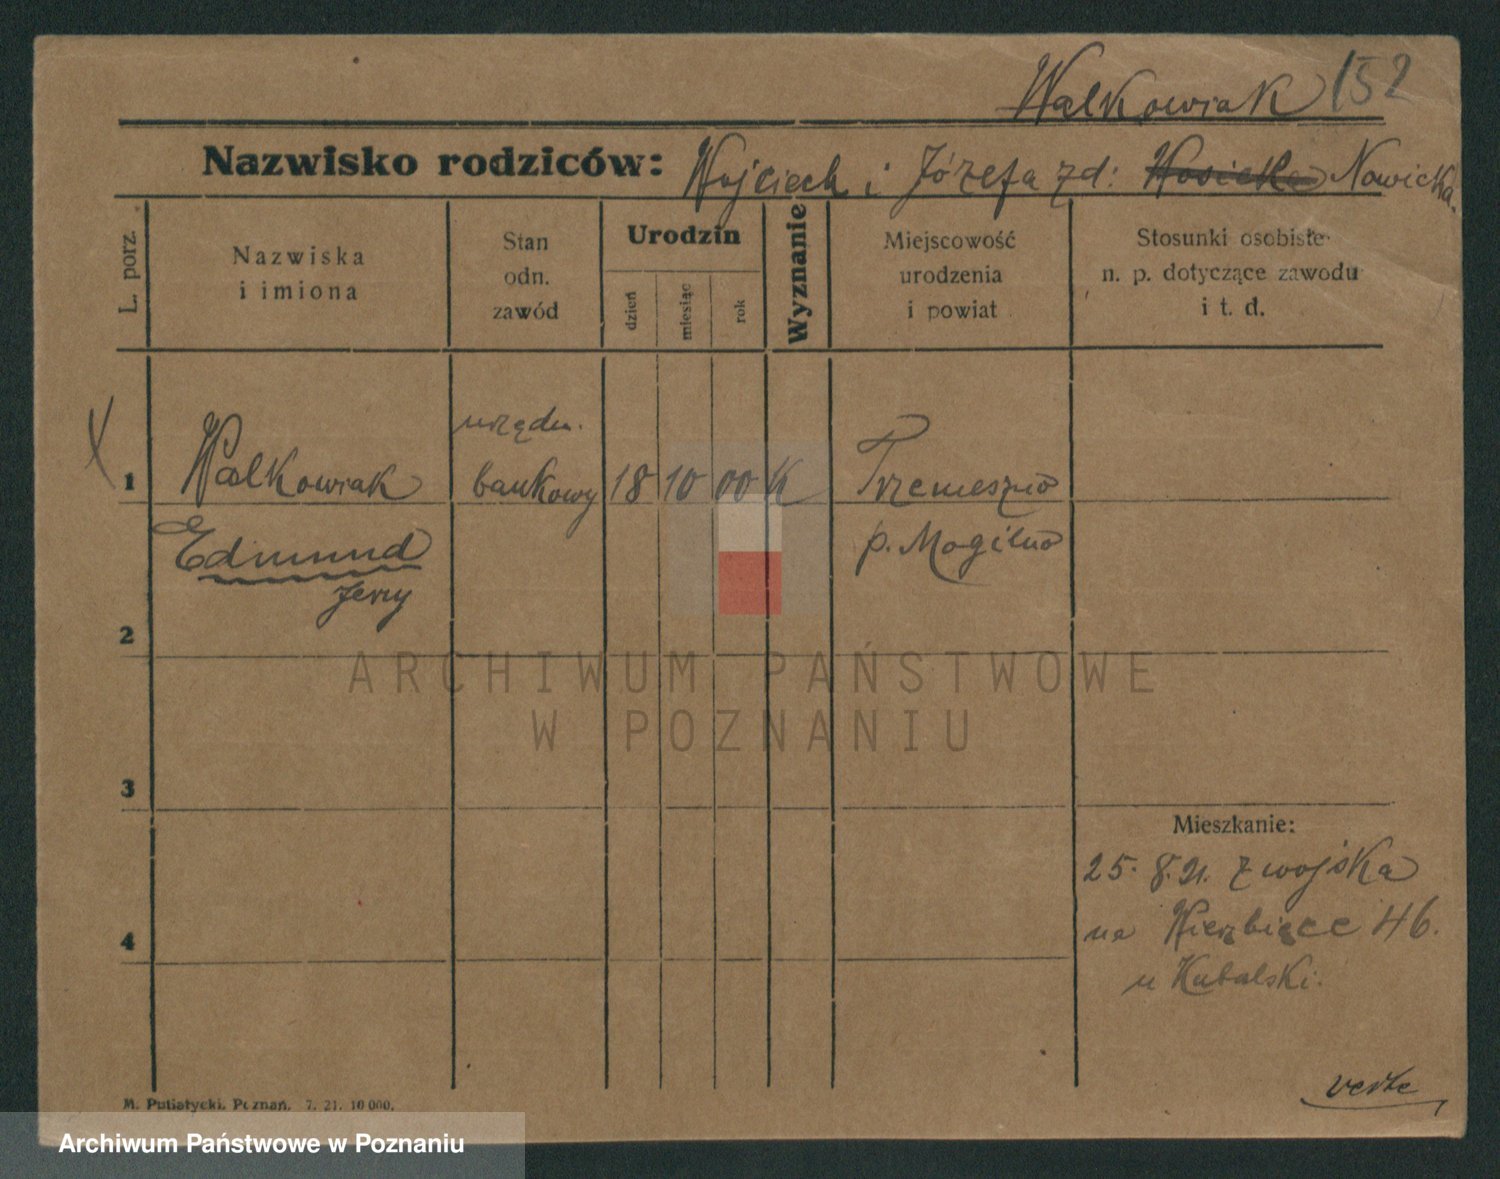 Walkowiak 152
Nazwisko rodziców: Wojciech i Józefa zd: Nowicka.
L. porz.
Nazwiska
i imiona
Stan
odn.
zawód
Urodzin
dzień
miesiąc
rok
Wyznanie
Miejscowość
urodzenia
i powiat
Stosunki osobiste
n. p. dotyczące zawodu
i t. d.
urzędn.
1 Walkowiak bankowy 18 10 00 K Trzemeszno
Edmund p. Mogilno
Jerzy
2
3
4
Mieszkanie:
25. 8. 21. z wojska
na Wierzbięce 46.
u Kubalski.
verte
M. Putiatycki, Poznań. 7. 21. 10 000.
ARCHIWUM PAŃSTWOWE
W POZNANIU
Archiwum Państwowe w Poznaniu